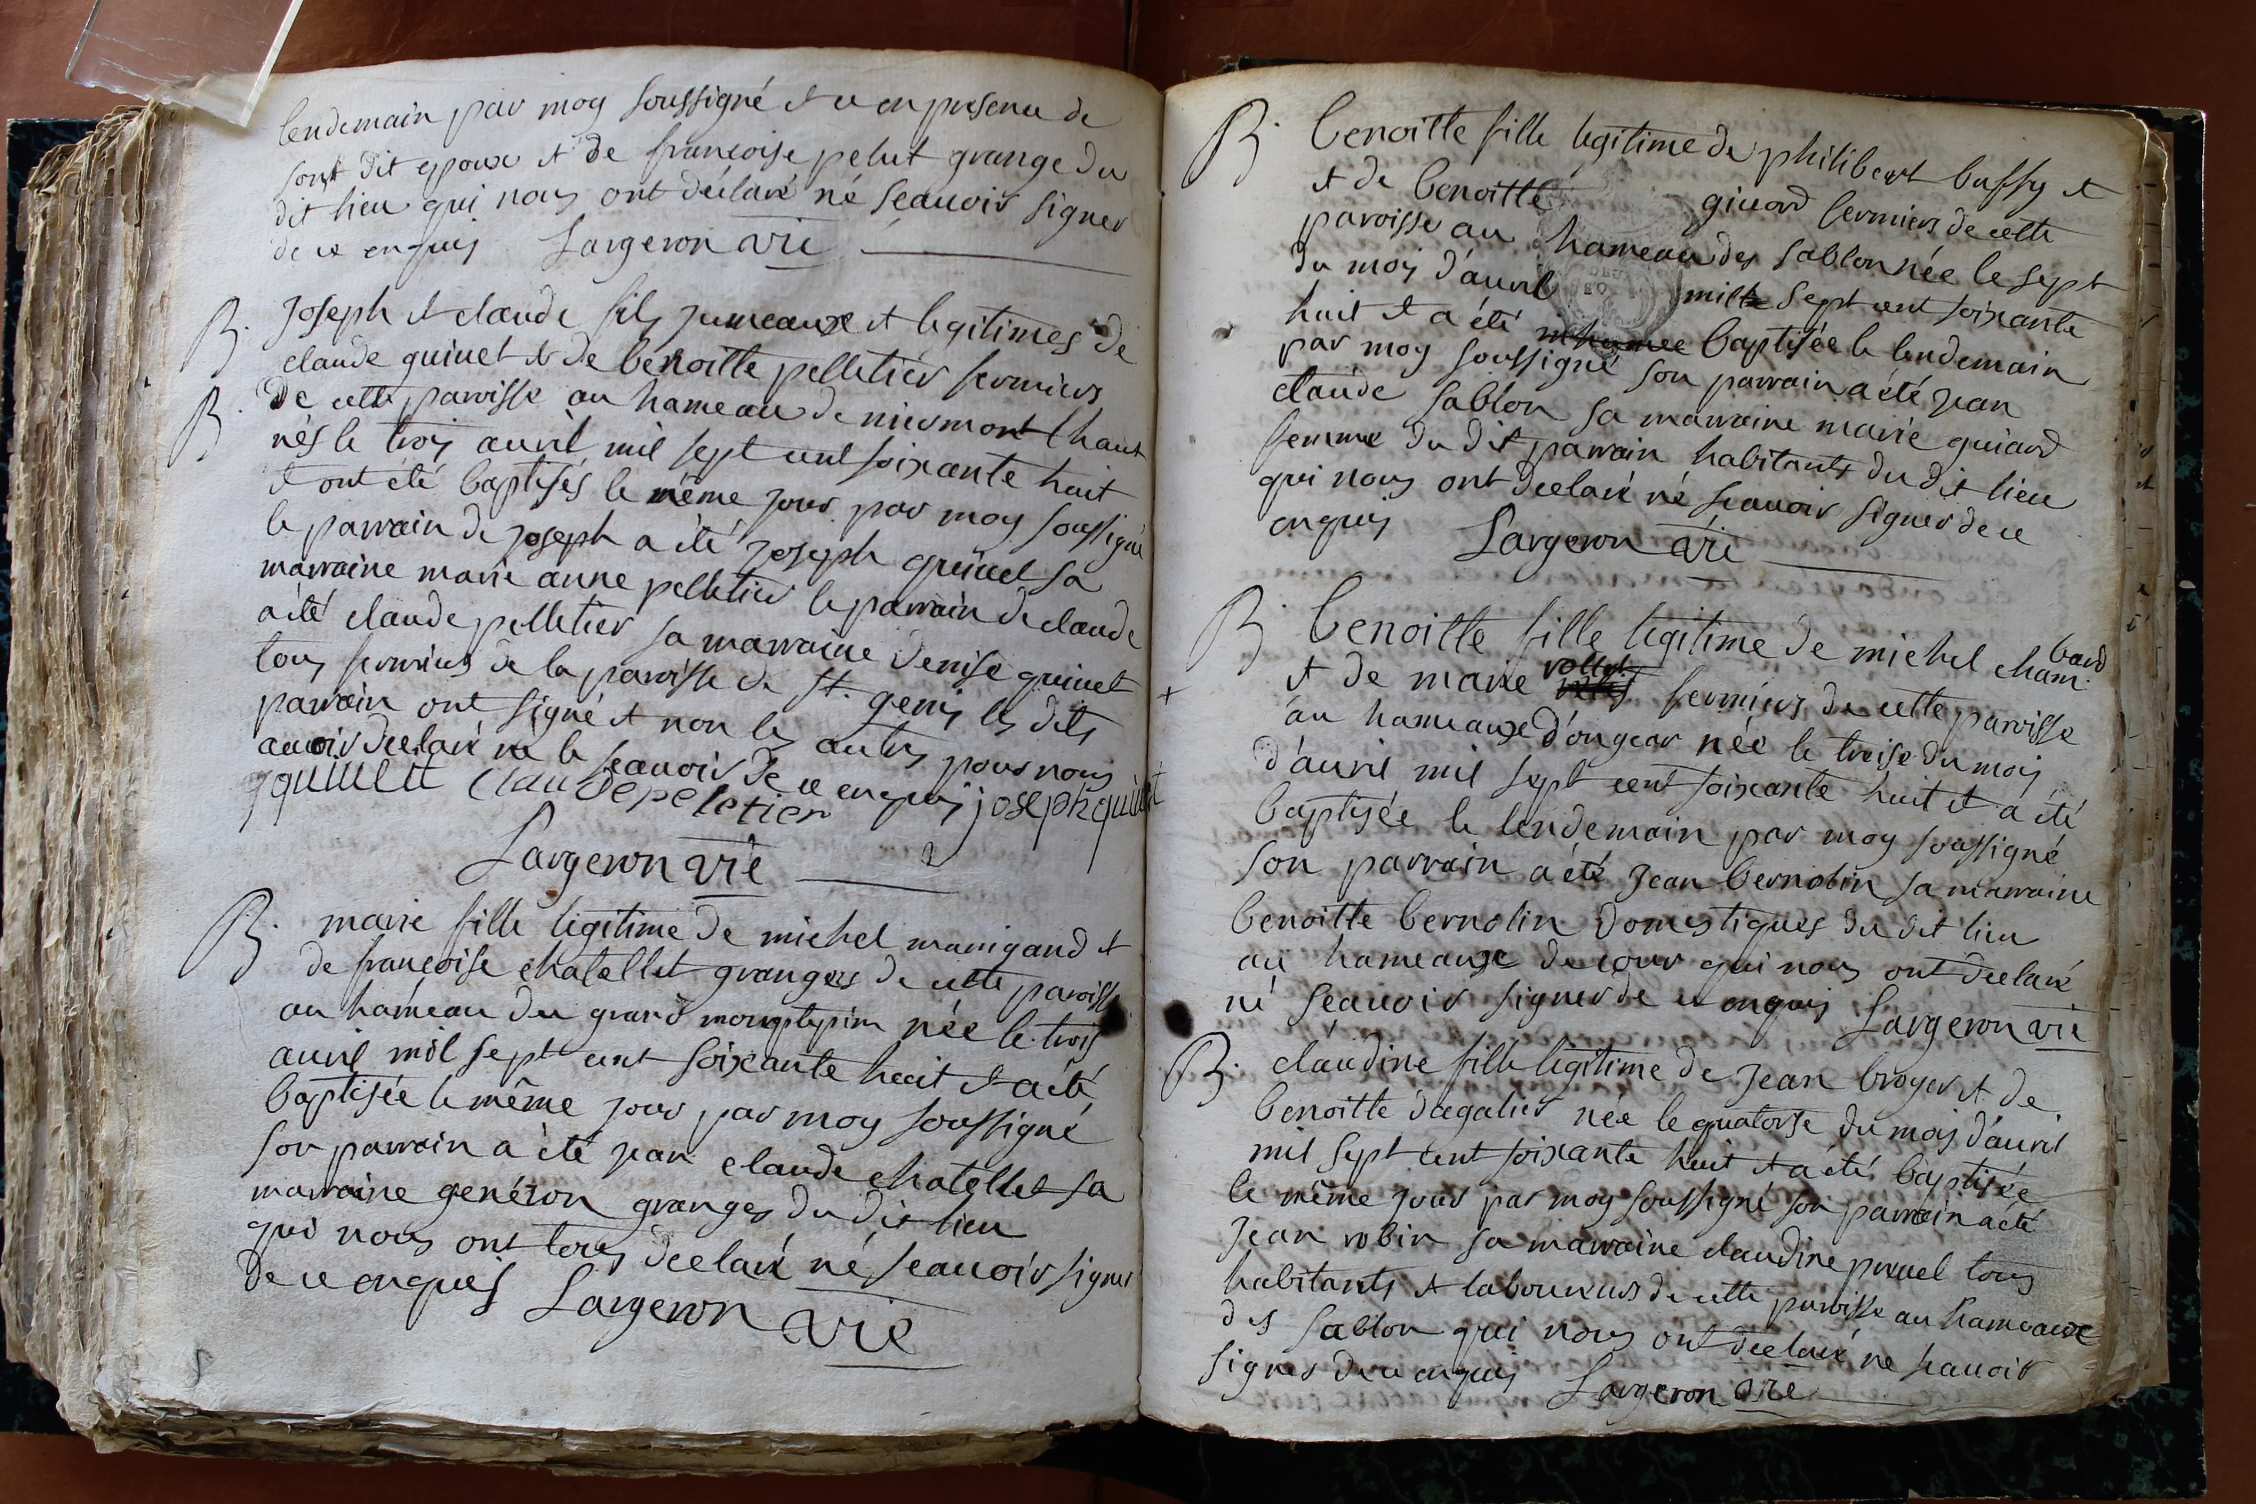 lendemain par moy soussigné et ce en presence de
sont dit epoux et de francoise pelut grange du
dit lieu qui nous ont déclaré né scauoir signer
de ce enquis Largeron vic
B. Joseph et claude fils jumeaux et legitimes de
claude guiuet & de benoitte pelletier fermiers
B. de cette paroisse au hameau de niermont haut
nés le trois auril mil sept cent soixante huit
et ont été baptisés le même jour par moy soussigné
le parrain de joseph a été joseph guiuet sa
marraine marie anne pelletier le parrain de claude
a été claude pelletier sa marraine denise guiuet
tous fermiers de la paroisse de st. genis les dits
parrain ont signé et non les autres pour nous
auoir declaré né le scauoir de ce enquis joseph guiuet
claude peletier
Largeron vic
B. marie fille legitime de michel manigand et
de francoise chatellet granges de cette paroisse
au hameau du grand née le trois
auril mil sept cent soixante huit et a été
baptisée le même jour par moy soussigné
son parrain a été jean claude chatellet sa
marraine genéson granges du dit lieu
qui nous ont tous declaré né scauoir signer
de ce enquis Largeron vic
B. benoitte fille legitime de philibert buffy et
et de benoitte giuord fermiers de cette
paroisse au hameau des sablon née le sept
du mois d'auril mille sept cent soixante
huit et a été baptisée le lendemain
par moy soussigné son parrain a été jean
claude sablon sa marraine marie guiard
femme du dit parrain habitants du dit lieu
qui nous ont declaré né scauoir signer de ce
enquis Largeron vic
B. benoitte fille legitime de michel cham-
baud
+ et de marie vollet fermiers de cette paroisse
au hameaux d'ongear née le treise du mois
d'auril mil sept cent soixante huit et a été
baptisée le lendemain par moy soussigné
son parrain a été jean bernolin sa marraine
benoitte bernolin domestiques du dit lieu
au hameaux de cour qui nous ont declaré
né scauoir signer de ce enquis Largeron vic
B. claudine fille legitime de jean broyer et de
benoitte dagalier née le quatorse du mois d'auril
mil sept cent soixante huit et a été baptisée
le même jour par moy soussigné son parrain a été
jean robin sa marraine claudine pruuel tous
habitants et laboureurs de cette paroisse au hameaux
des sablon qui nous ont declaré ne scauoir
signer de ce enquis Largeron vic